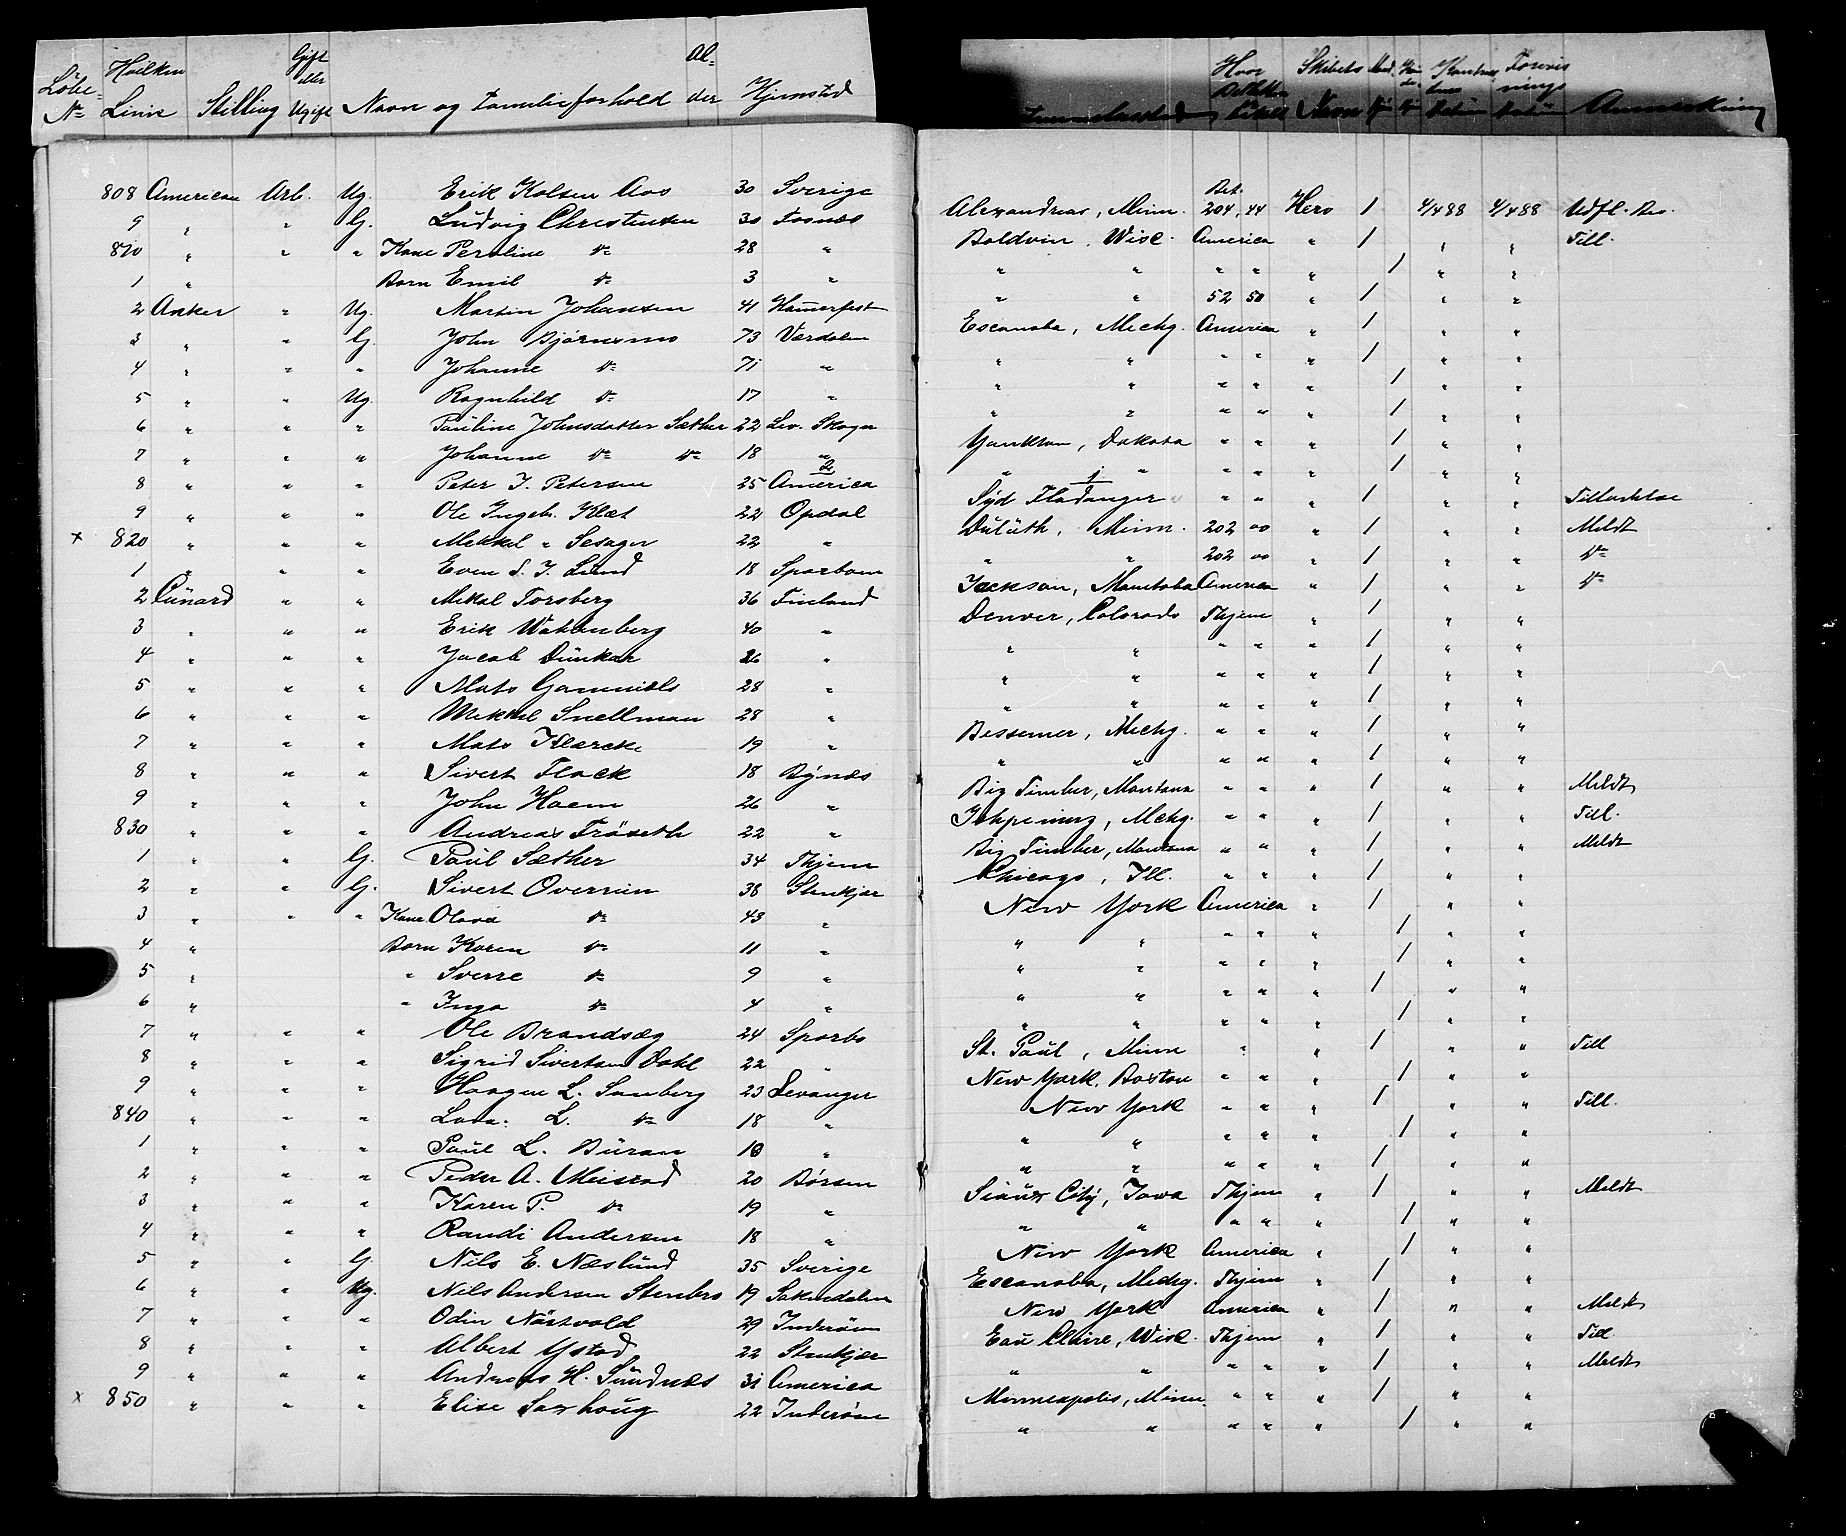 Löbe- Nº Hvilken Linie Stilling Gift eller Ugift Navn og Familieforhold Al- der Hjemsted Hvor Billetten Skibets Navn Anmerkning
808 American Arb. Ug. Erik Kolsen Aas 30 Sverige Alexandria, Minn. Bet. 204,44 Hero 1 4/4 88 4/4 88 Udfl.
9 " " G. Ludvig Christensen 30 Fosnes Boldvin, Wisc. America " 1 " " Till.
810 " " " Kone Peroline do 28 " " " " " " 1 " "
1 " Barn Emil do 3 " " " 52 50 " 1 " "
2 Anker " Ug. Martin Johansen 41 Hamerfest Escanaba, Michg. America " 1 " "
3 " " G. John Bjørnsmo 73 Værdalen " " " " " 1 " "
4 " " " Johanne do 71 " " " " " " 1 " "
5 " " Ug. Ragnhild do 17 " " " " " " 1 " "
6 " " " Pauline Johnsdatter Sæther 22 Lev. Skogn Yankton, Dakota " " " 1 " "
7 " " " Johanne do do 18 " " " " " " 1 " "
8 " " " Peter J. Petersen 25 America Syd Fladanger " " " 1 " "
9 " " " Ole Ingebr. Klæt 22 Opdal Duluth, Minn. 202 00 " 1 " " Meldt
x 820 " " " Mikkel " Sesager 22 " " " 202 00 " 1 " " do
1 " " " Even S. J. Lund 18 Sparboen Jackson, Manitoba America " 1 " " do
2 Cunard " " Mikal Forsberg 36 Finland Denver, Colorado Thjem " 1 " "
3 " " " Erik Wakenberg 40 " " " " " " 1 " "
4 " " " Jacob Dunkar 26 " " " " " " 1 " "
5 " " " Mats Gammials 28 " " " " " " 1 " "
6 " " " Mikkel Snellman 28 " Bessemer, Michg. " " " 1 " "
7 " " " Mats Klarcke 19 " " " " " " 1 " "
8 " " " Sivert Flack 18 Bynæs Big Timber, Montana " " " 1 " " Meldt
9 " " " John Haem 26 " Ishpeming, Mchg. " " " 1 " " Till.
830 " " " Andreas Frøseth 22 " Big Timber, Montana " " " 1 " " Meldt
1 " " G. Paul Sæther 34 Thjem Chicago, Ill. " " " 1 " "
2 " " G. Sivert Overrein 38 Stenkjær New York America " 1 " "
3 " " " Kone Olava do 43 " " " " " " 1 " "
4 " Barn Karen do 11 " " " " " " 1 " "
5 " " Sverre do 9 " " " " " " 1 " "
6 " " Inga do 4 " " " " " " 1 " "
7 " " " Ole Brandsæg 24 Sparbo St. Paul, Minn " " 1 " " Till
8 " " " Sigrid Sivertsen Dahl 22 " New York. Boston " " " 1 " "
9 " " " Haagen L. Sunberg 23 Levanger New York " " " 1 " " Till.
840 " " " L. do 18 " " " " " " 1 " "
1 " " " Paul L. Buran 10 " " " " " " 1 " "
2 " " " Peder A. Meistad 20 Børsen Sioux City, Iowa Thjem " 1 " " Meldt
3 " " " Karen P. do 19 " " " " " " 1 " "
4 " " " Randi Andersen 18 " New York America " 1 " "
5 " " G. Nils E. Næslund 35 Sverige Escanaba, Michg. Thjem " 1 " "
6 " " Ug. Nils Andersen Stenbro 19 Saknedalen New York America " 1 " " Meldt
7 " " " Odin Nørstvold 29 Inderøen Eau Claire, Wisc. Thjem " 1 " " Till
8 " " " Albert Ystad 22 Stenkjær " " " " " 1 " " Meldt
9 " " " Andreas H. Sundnæs 31 America Minneapolis, Minn. " " " 1 " "
x 850 " " " Elise Saxhaug 22 Inderøen " " " " " 1 " "